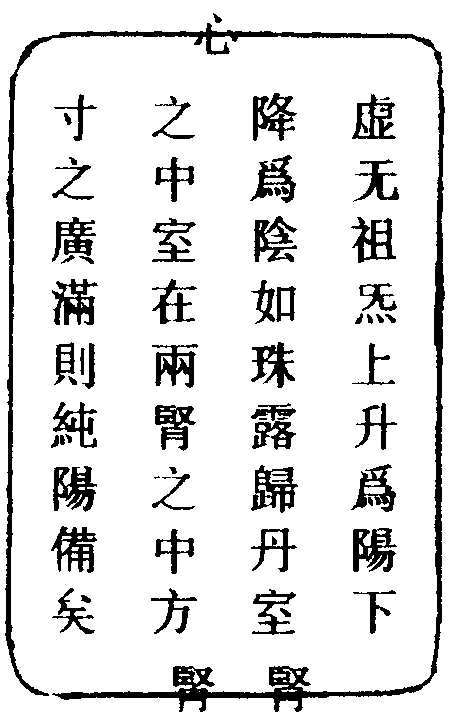 心
虛无祖炁上升爲陽下
降爲陰如珠露歸丹室
之中室在兩腎之中方
寸之廣滿則純陽備矣
腎
腎